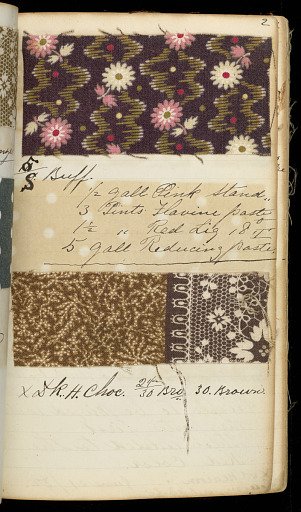 2
Buff.
1/2 gall Pink Stand..
3 Pints Flavine paste
1 1/2 " Red Liq 18 °T
5 gall Reducing paste
X D K. H. Choc. 24/30 Bro 30. Brown